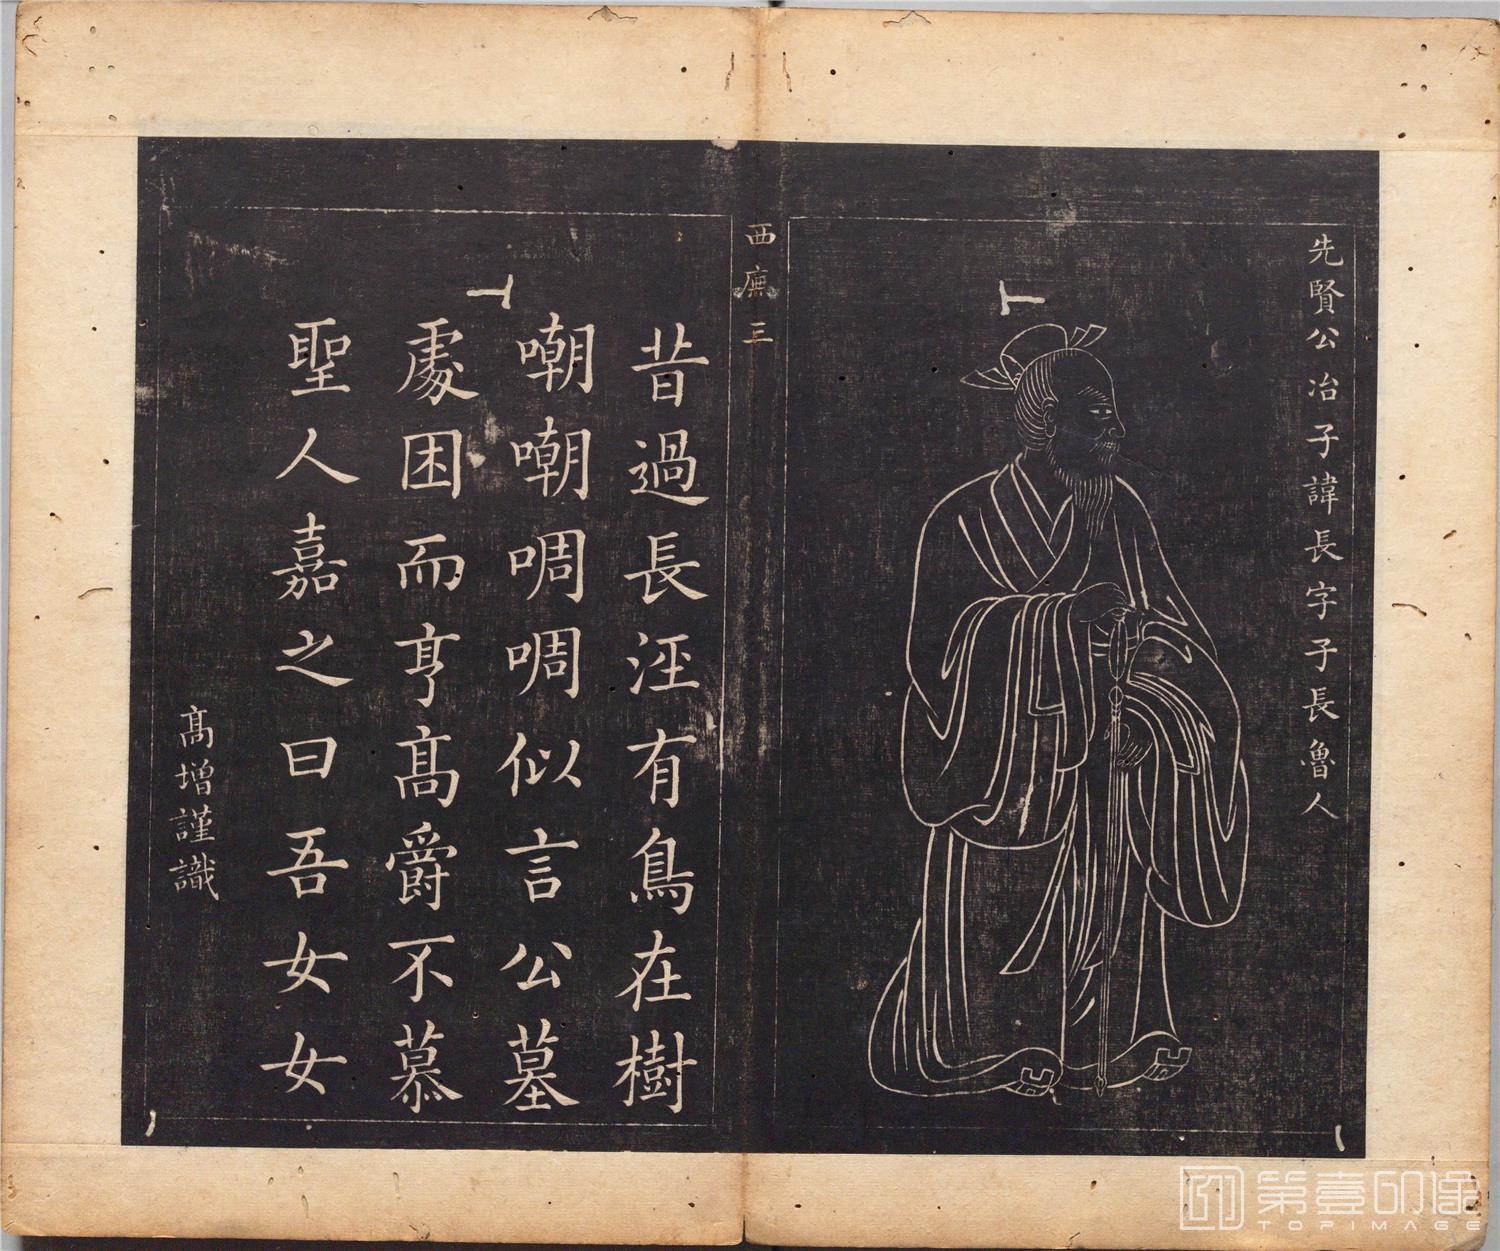 先賢公冶子諱長字子長魯人
西廡三
昔過長涇有鳥在樹
嘲嘲啁啁似言公墓
處困而亨高爵不慕
聖人嘉之曰吾女女
高增謹識
第壹印像
TOPIMAGE